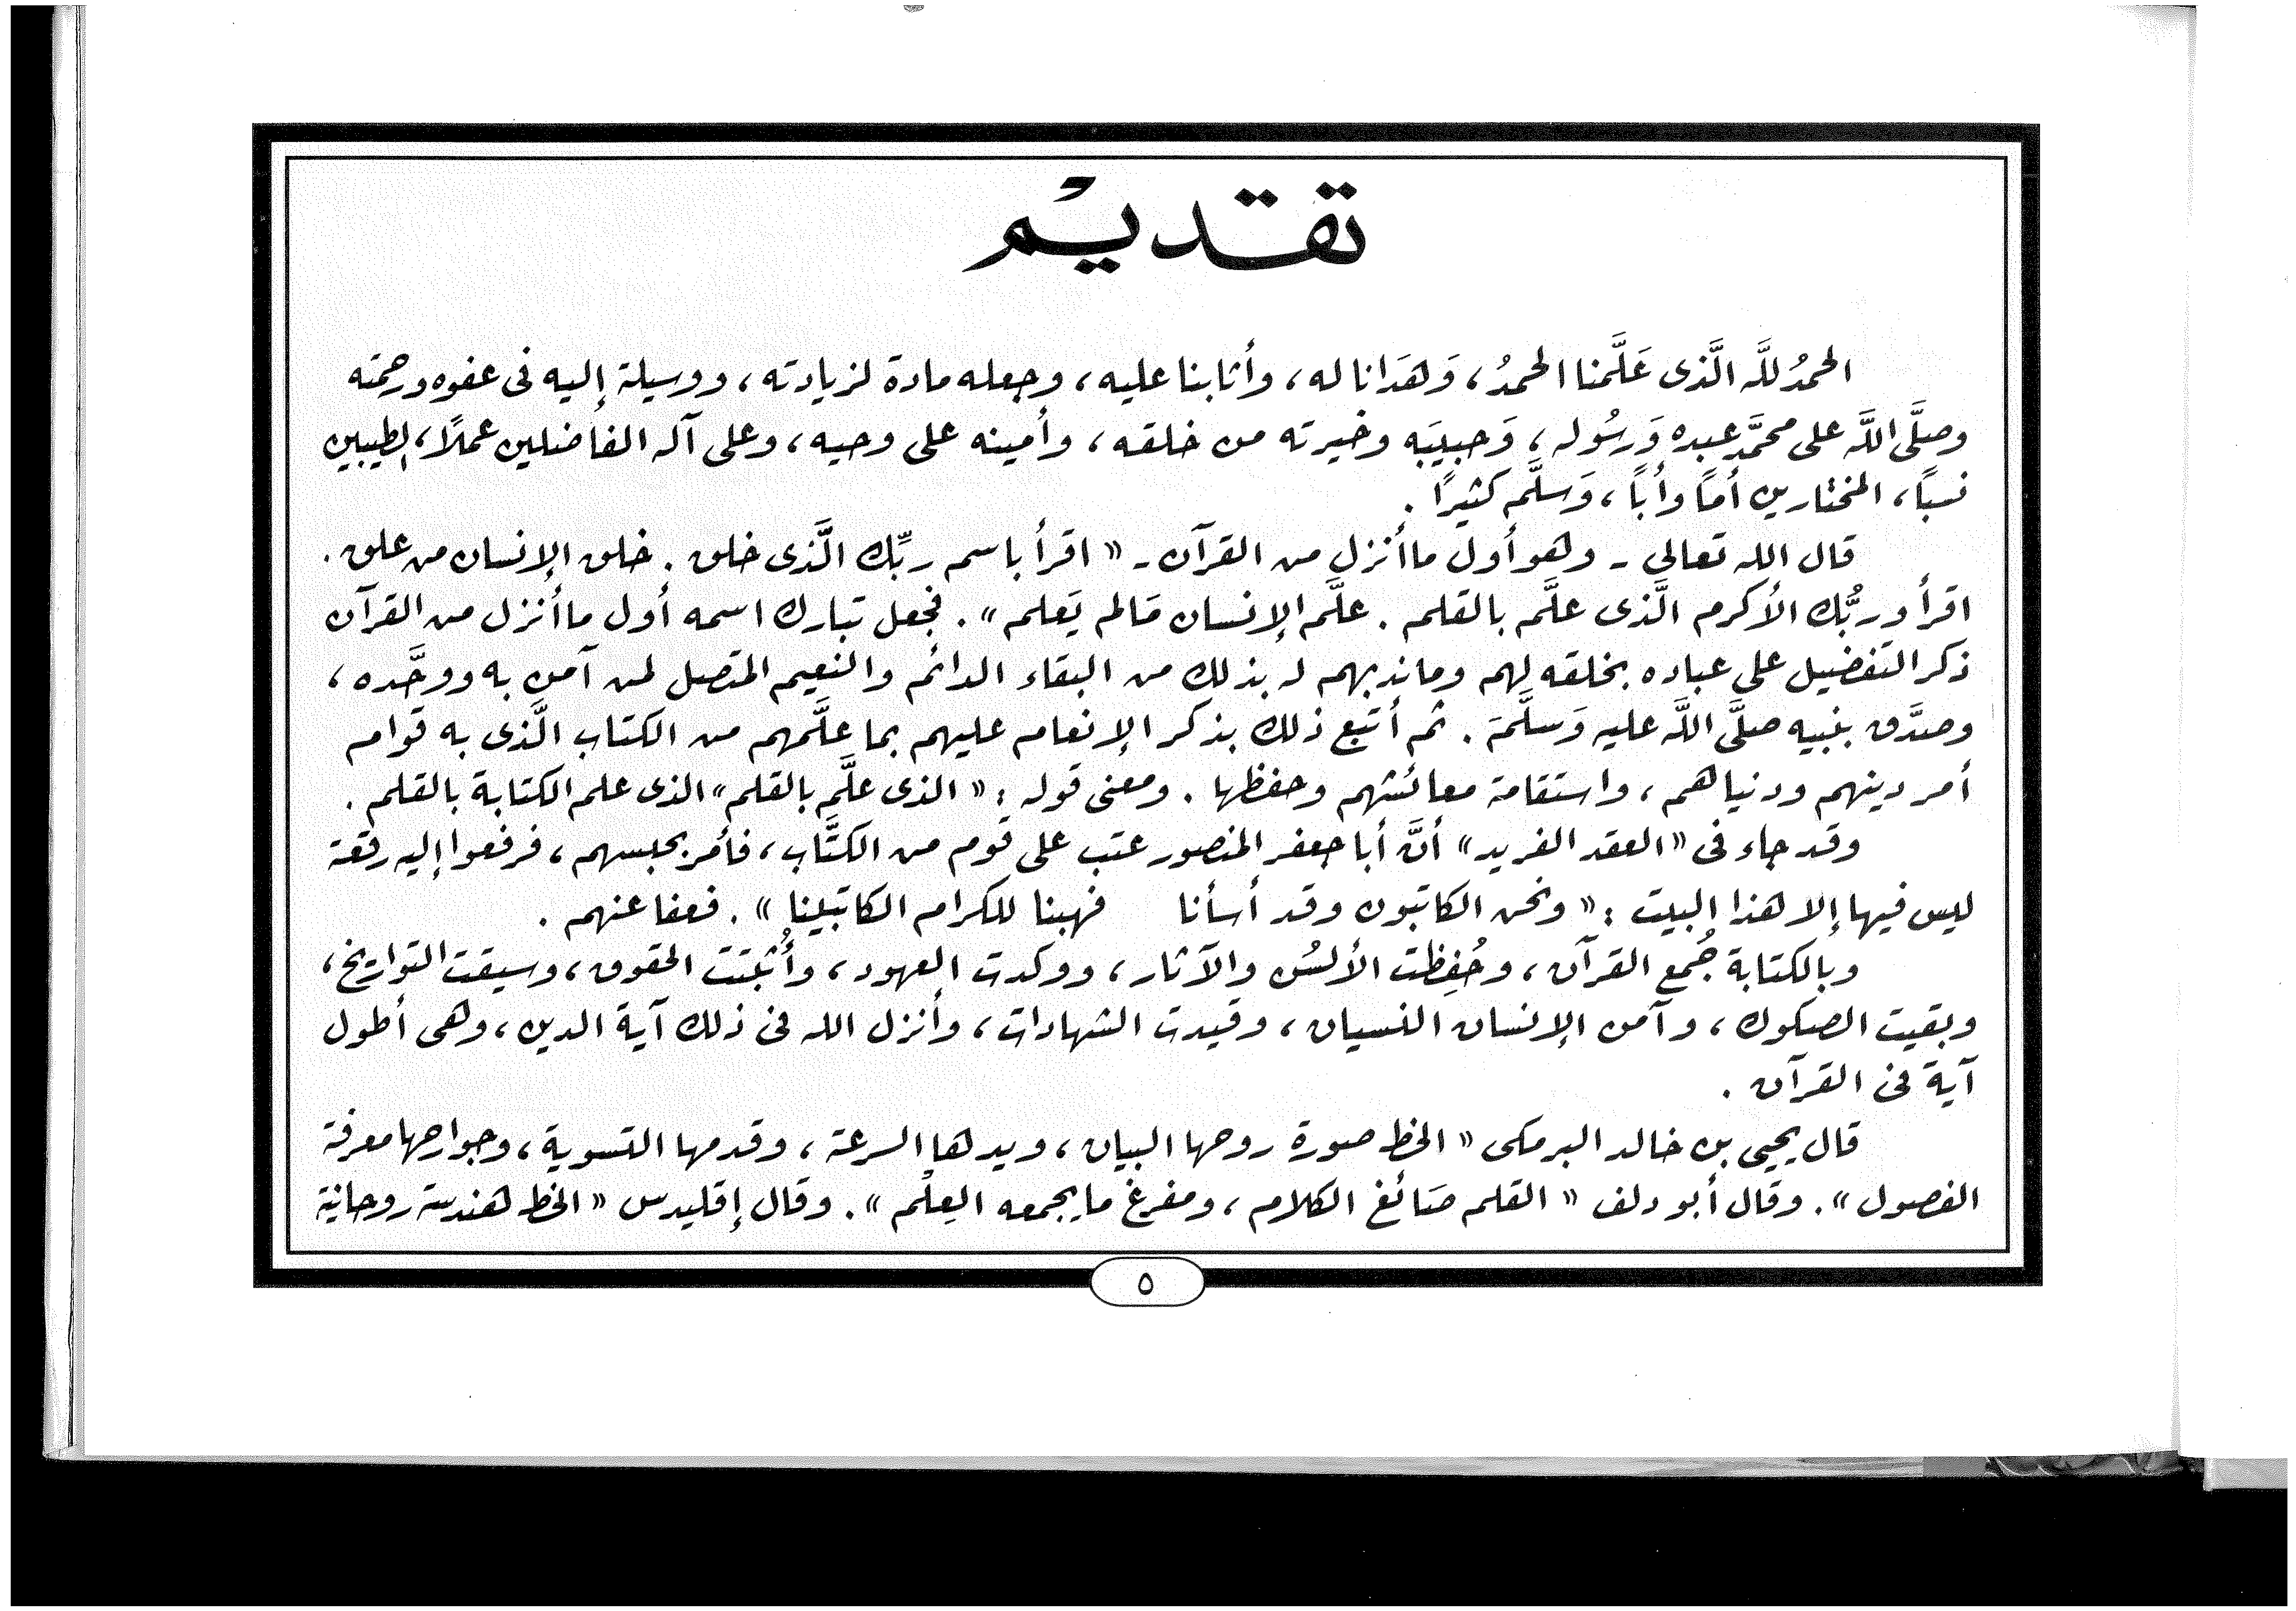 تقديم
الحمدُ للَّه الَّذى عَلَّمنا الحمدُ، وَهدَانا له، وأثابنا عليه، وجعله مادة لزيادته، ووسيلة إليه فى عفوه ورحمته
وصلَّى اللَّه على محمَّد عبده وَرسُوله، وَحبيبَه وخيرته من خلقه، وأمينه على وحيه، وعلى آله الفاضلين عملًا، الطيبين
نسبًا، المختارين أمًا وأبًا، وَسلَّم كثيرًا.
قال الله تعالى - وهو أول ما أنزل من القرآن - « اقرأ باسم ربِّك الَّذى خلق . خلق الإنسان من علق .
اقرأ وربُّك الأكرم الَّذى علَّم بالقلم . علَّم الإنسان مَالم يَعلم » . فجعل تبارك اسمه أول ما أنزل من القرآن
ذكر التفضيل على عباده بخلقه لهم وماندبهم له بذلك من البقاء الدائم والنعيم المتصل لمن آمن به ووحَّده،
وصدَّق بنبيه صلَّى اللَّه عليه وَسلَّمَ . ثم أتبع ذلك بذكر الإنعام عليهم بما علَّمهم من الكتاب الَّذى به قوام
أمر دينهم ودنياهم، واستقامة معائشهم وحفظها . ومعنى قوله : « الذى علَّم بالقلم » الذى علم الكتابة بالقلم .
وقد جاء فى « العقد الفريد » أنَّ أبا جعفر المنصور عتب على قوم من الكتَّاب، فأمر بحبسهم، فرفعوا إليه رقعة
ليس فيها إلا هذا البيت : « ونحن الكاتبون وقد أسأنا فهبنا للكرام الكاتبينا » . فعفا عنهم .
وبالكتابة جُمع القرآن، وحُفِظت الألسُن والآثار، ووكدت العهود، وأُثبتت الحقوق، وسيقت التواريخ،
وبقيت الصكوك، وآمن الإنسان النسيان، وقيدت الشهادات، وأنزل الله فى ذلك آية الدين، وهى أطول
آية فى القرآن .
قال يحيى بن خالد البرمكى « الخط صورة روحها البيان، ويدها السرعة، وقدمها التسوية، وجوارحها معرفة
الفصول » . وقال أبو دلف « القلم صَائغ الكلام، ومفرغ ما يجمعه العِلْم » . وقال إقليدس « الخط هندسة روحانية
٥